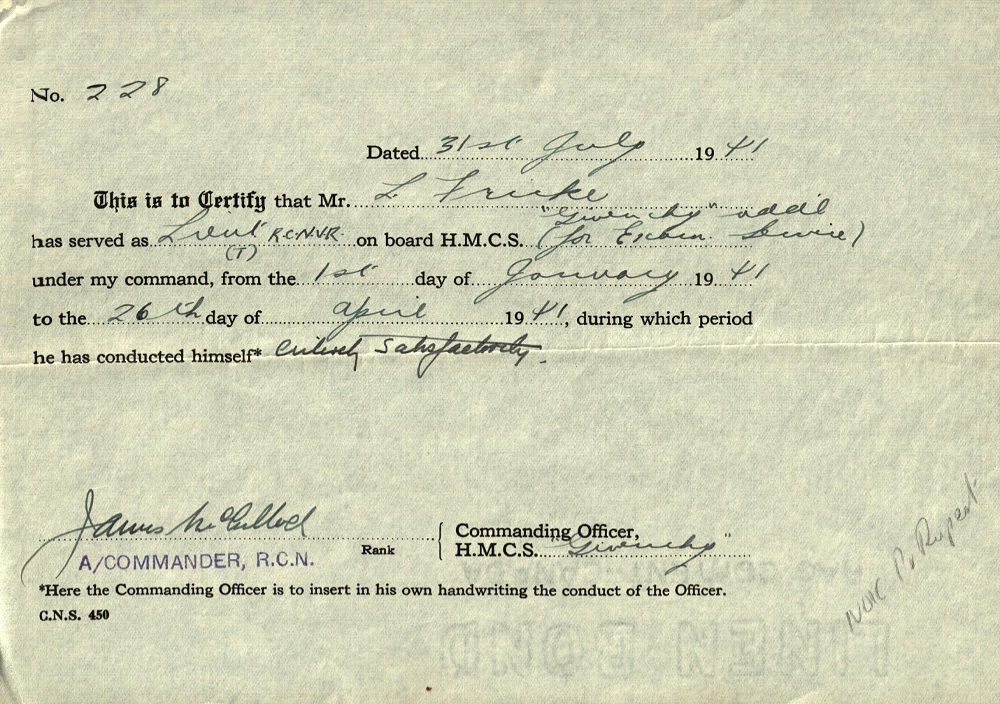 No. 228
Dated 31st July 1941
This is to Certify that Mr. L Fricke
"Givenchy" addl
has served as Lieut RCNVR on board H.M.C.S. (for Exam. Service)
(T)
under my command, from the 1st day of January 1941
to the 26th day of April 1941, during which period
he has conducted himself* entirely satisfactorily.
James
A/COMMANDER, R.C.N.
Rank
Commanding Officer,
H.M.C.S. "Givenchy"
*Here the Commanding Officer is to insert in his own handwriting the conduct of the Officer.
C.N.S. 450
NOIC P. Rupert
LINEN BOND